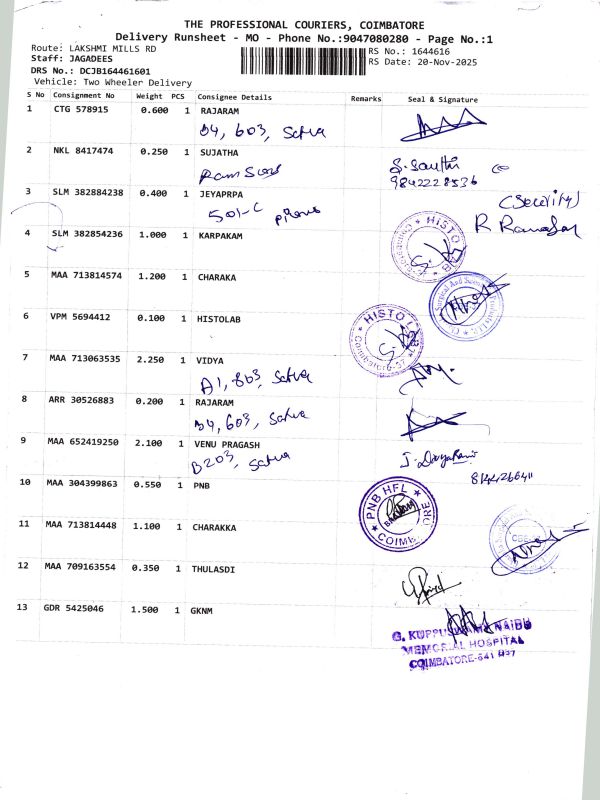 THE PROFESSIONAL COURIERS, COIMBATORE
Delivery Runsheet - MO - Phone No.:9047080280 - Page No.:1
Route: LAKSHMI MILLS RD
RS No.: 1644616
Staff: JAGADEES
RS Date: 20-Nov-2025
DRS No.: DCJB164461601
Vehicle: Two Wheeler Delivery
S No Consignment No Weight PCS Consignee Details Remarks Seal & Signature
1 CTG 578915 0.600 1 RAJARAM
D4, 603, Satva
2 NKL 8417474 0.250 1 SUJATHA
Ram Sons
S. Santhi
9842228536
3 SLM 382884238 0.400 1 JEYAPRPA
501-C
(Security)
4 SLM 382854236 1.000 1 KARPAKAM
HISTO LAB
5 MAA 713814574 1.200 1 CHARAKA
6 VPM 5694412 0.100 1 HISTOLAB
HISTO LAB
Coimbatore-37
7 MAA 713063535 2.250 1 VIDYA
A1, 803, Satva
8 ARR 30526883 0.200 1 RAJARAM
D4, 603, Satva
9 MAA 652419250 2.100 1 VENU PRAGASH
B203, Satva
10 MAA 304399863 0.550 1 PNB
PNB HFL
COIMBATORE
11 MAA 713814448 1.100 1 CHARAKKA
12 MAA 709163554 0.350 1 THULASDI
13 GDR 5425046 1.500 1 GKNM
G. KUPPUSWAMY NAIDU
MEMORIAL HOSPITAL
COIMBATORE-641 037